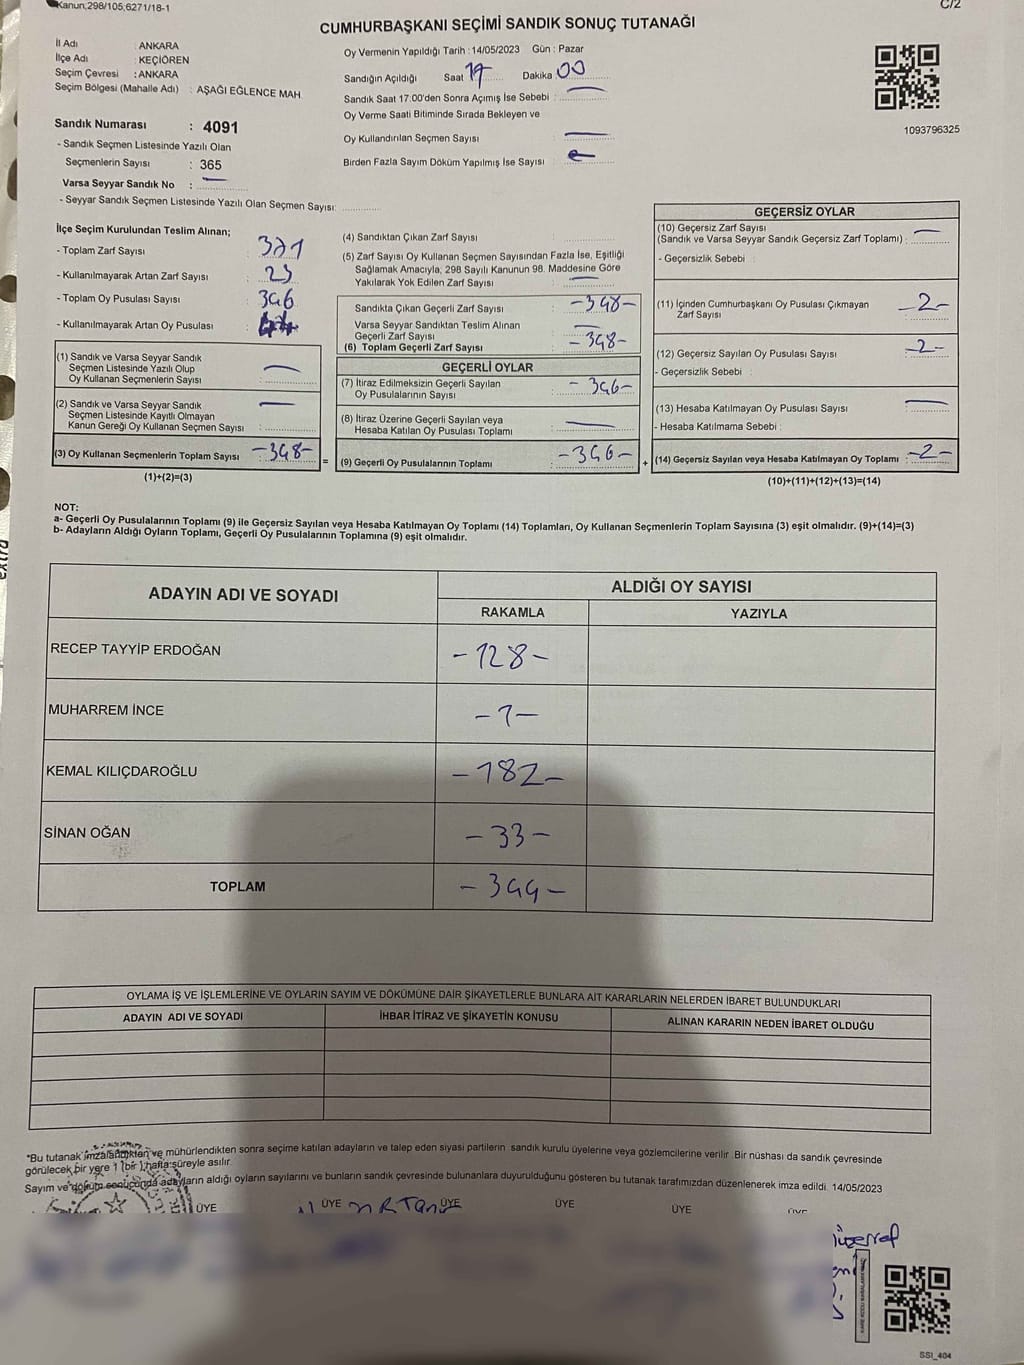 Kanun;298/105;6271/18-1
C/2
CUMHURBAŞKANI SEÇİMİ SANDIK SONUÇ TUTANAĞI
İl Adı : ANKARA
İlçe Adı : KEÇİÖREN
Seçim Çevresi : ANKARA
Seçim Bölgesi (Mahalle Adı) : AŞAĞI EĞLENCE MAH.
Sandık Numarası : 4091
- Sandık Seçmen Listesinde Yazılı Olan
Seçmenlerin Sayısı : 365
Varsa Seyyar Sandık No : —
- Seyyar Sandık Seçmen Listesinde Yazılı Olan Seçmen Sayısı:
Oy Vermenin Yapıldığı Tarih : 14/05/2023 Gün : Pazar
Sandığın Açıldığı Saat 17 Dakika 00
Sandık Saat 17:00'den Sonra Açımış İse Sebebi : —
Oy Verme Saati Bitiminde Sırada Bekleyen ve
Oy Kullandırılan Seçmen Sayısı : —
Birden Fazla Sayım Döküm Yapılmış İse Sayısı :
1093796325
İlçe Seçim Kurulundan Teslim Alınan;
- Toplam Zarf Sayısı : 371
- Kullanılmayarak Artan Zarf Sayısı : 23
- Toplam Oy Pusulası Sayısı : 396
- Kullanılmayarak Artan Oy Pusulası :
(1) Sandık ve Varsa Seyyar Sandık
Seçmen Listesinde Yazılı Olup
Oy Kullanan Seçmenlerin Sayısı : —
(2) Sandık ve Varsa Seyyar Sandık
Seçmen Listesinde Kayıtlı Olmayan
Kanun Gereği Oy Kullanan Seçmen Sayısı : —
(3) Oy Kullanan Seçmenlerin Toplam Sayısı : -348-
(1)+(2)=(3)
=
(4) Sandıktan Çıkan Zarf Sayısı :
(5) Zarf Sayısı Oy Kullanan Seçmen Sayısından Fazla İse, Eşitliği
Sağlamak Amacıyla, 298 Sayılı Kanunun 98. Maddesine Göre
Yakılarak Yok Edilen Zarf Sayısı : —
Sandıkta Çıkan Geçerli Zarf Sayısı : -348-
Varsa Seyyar Sandıktan Teslim Alınan
Geçerli Zarf Sayısı : —
(6) Toplam Geçerli Zarf Sayısı : -348-
GEÇERLİ OYLAR
(7) İtiraz Edilmeksizin Geçerli Sayılan
Oy Pusulalarının Sayısı : -346-
(8) İtiraz Üzerine Geçerli Sayılan veya
Hesaba Katılan Oy Pusulası Toplamı : —
(9) Geçerli Oy Pusulalarının Toplamı : -346-
+
GEÇERSİZ OYLAR
(10) Geçersiz Zarf Sayısı
(Sandık ve Varsa Seyyar Sandık Geçersiz Zarf Toplamı) : —
- Geçersizlik Sebebi :
(11) İçinden Cumhurbaşkanı Oy Pusulası Çıkmayan
Zarf Sayısı : -2-
(12) Geçersiz Sayılan Oy Pusulası Sayısı : -2-
- Geçersizlik Sebebi :
(13) Hesaba Katılmayan Oy Pusulası Sayısı : —
- Hesaba Katılmama Sebebi :
(14) Geçersiz Sayılan veya Hesaba Katılmayan Oy Toplamı : -2-
(10)+(11)+(12)+(13)=(14)
NOT:
a- Geçerli Oy Pusulalarının Toplamı (9) ile Geçersiz Sayılan veya Hesaba Katılmayan Oy Toplamı (14) Toplamları, Oy Kullanan Seçmenlerin Toplam Sayısına (3) eşit olmalıdır. (9)+(14)=(3)
b- Adayların Aldığı Oyların Toplamı, Geçerli Oy Pusulalarının Toplamına (9) eşit olmalıdır.
ADAYIN ADI VE SOYADI
ALDIĞI OY SAYISI
RAKAMLA
YAZIYLA
RECEP TAYYİP ERDOĞAN -128-
MUHARREM İNCE -1-
KEMAL KILIÇDAROĞLU -182-
SİNAN OĞAN -33-
TOPLAM -344-
OYLAMA İŞ VE İŞLEMLERİNE VE OYLARIN SAYIM VE DÖKÜMÜNE DAİR ŞİKAYETLERLE BUNLARA AİT KARARLARIN NELERDEN İBARET BULUNDUKLARI
ADAYIN ADI VE SOYADI
İHBAR İTİRAZ VE ŞİKAYETİN KONUSU
ALINAN KARARIN NEDEN İBARET OLDUĞU
*Bu tutanak imzalandıkten ve mühürlendikten sonra seçime katılan adayların ve talep eden siyasi partilerin sandık kurulu üyelerine veya gözlemcilerine verilir. Bir nüshası da sandık çevresinde
görülecek bir yere 1 (bir) hafta süreyle asılır.
Sayım ve döküm sonucunda adayların aldığı oyların sayılarını ve bunların sandık çevresinde bulunanlara duyurulduğunu gösteren bu tutanak tarafımızdan düzenlenerek imza edildi. 14/05/2023
ÜYE ÜYE ÜYE ÜYE ÜYE
SSI_404
extra